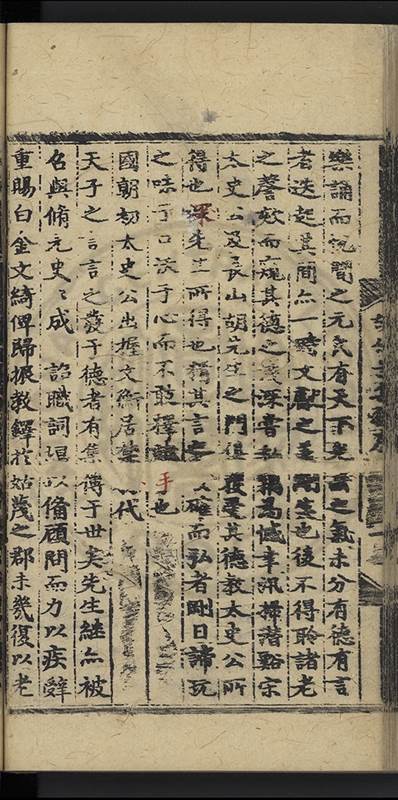 樂誦而說聞之元氏有天下光岳之氣未分有德有言
者迭起其間亦一時文獻之盛也後不得聆諸老
之謦欬而窺其德之淺深書私竊為憾幸汛掃潛谿宋
太史公及長山胡先生之門俱獲受其德教太史公所
得也深先生所得也稱其言確而弘者剛日諦玩
之味于口浹于心而不敢釋手也
國朝初太史公出握文衡居禁代
天子之言言之發于德者有集傳于世矣先生繼亦被
召與脩元史史成詔職詞垣以備顧問而力以疾辭
重賜白金文綺俾歸振教鐸於姑蔑之郡未幾復以老